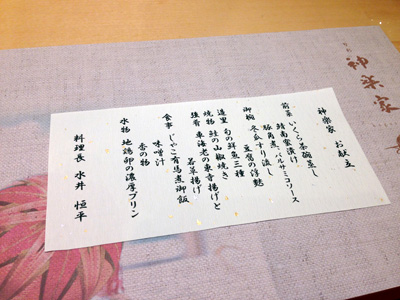 神楽家 お献立
前菜 いくら茶碗蒸し
鯖南蛮漬け
豚角煮 バルサミコソース
御椀 冬瓜すり流し
豆腐の浮麩
造里 旬の鮮魚三種
焼物 鮭の山椒焼き
強肴 車海老の東寺揚げと
若草揚げ
食事 じゃこ有馬煮御飯
味噌汁
香の物
水物 地鶏卵の濃厚プリン
料理長 水井 恒平
神楽家